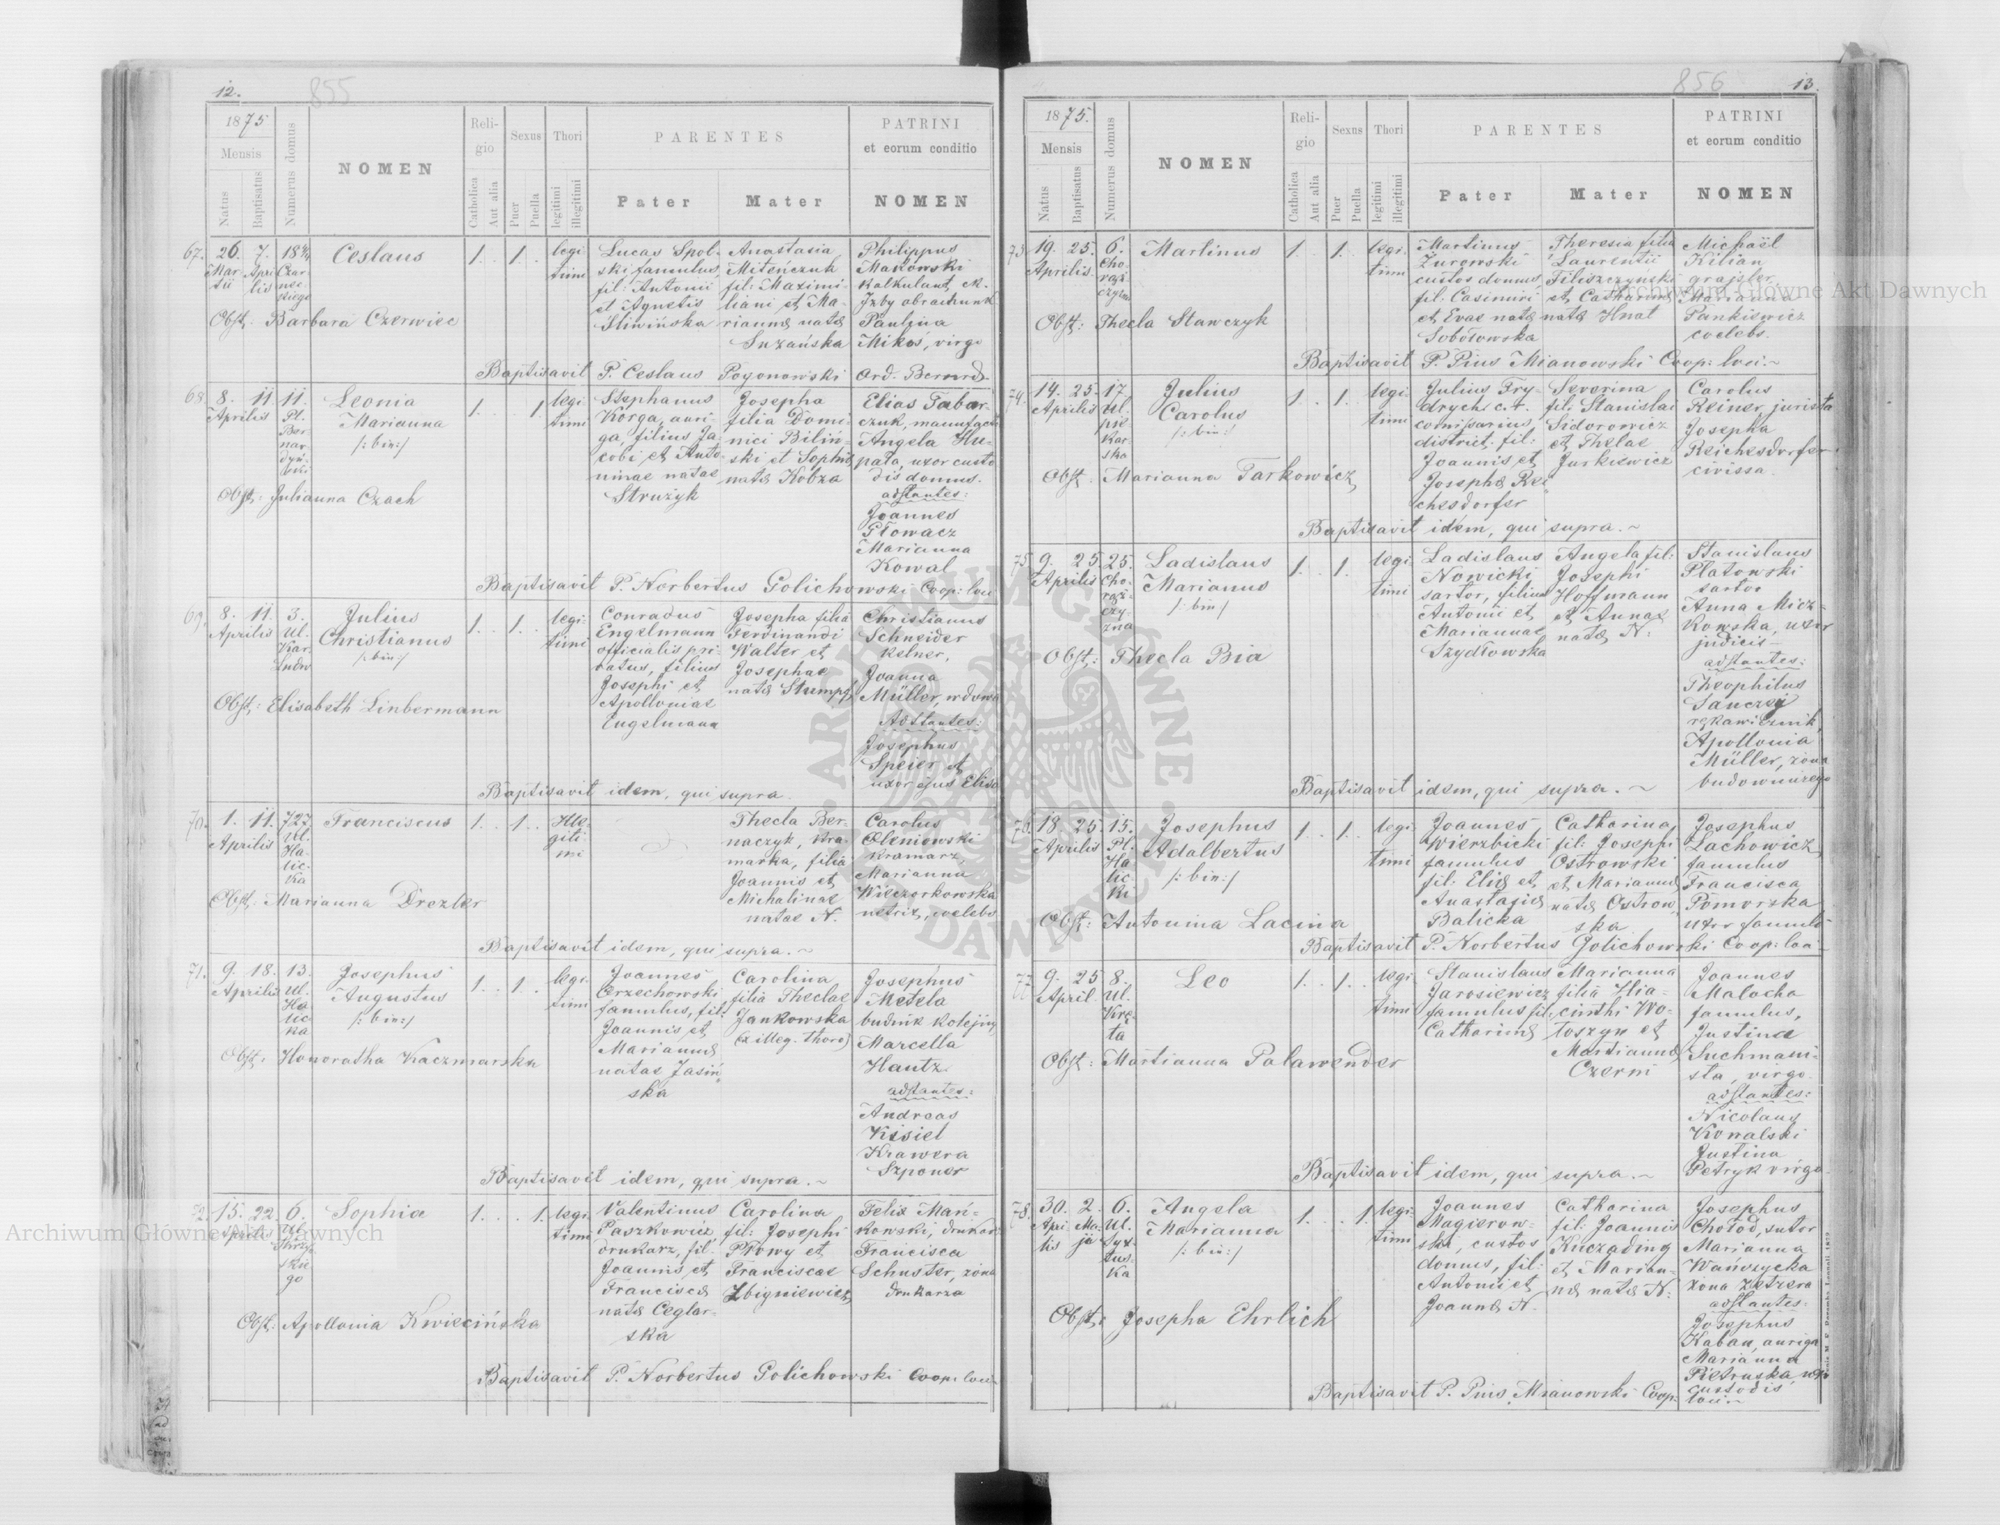 12.
855
1875
Mensis
Natus
Baptisatus
Numerus domus
NOMEN
Religio
Catholica
Aut alia
Sexus
Puer
Puella
Thori
legitimi
illegitimi
PARENTES
Pater
Mater
PATRINI
et eorum conditio
NOMEN
67.
26.
Martii
7.
Aprilis
Ceslaus
1.
1.
legi
timi
Lucas Spol-
ski famulus,
fil: Antonii
et Agnetis
Sliwińska
Anastasia
Miteńczuk
fil: Maximi-
liani et Ma-
rianna nata
Suzańska
Philippus
Makowski
Kalkulant, ck.
Izby obrachunk.
Paulina
Mikos, virgo
Obst: Barbara Czerwiec
Baptisavit P. Ceslaus Pogonowski Ord. Bernrd.
68.
8.
11
Aprilis
11.
Pl.
Ber-
nar-
dyń-
ski
Leonia
Marianna
/:bin:/
1.
1.
legi
timi
Stephanus
Korga, auri-
ga, filius Ja-
cobi et Anto-
ninae natae
Strużyk
Josepha
filia Domi-
nici Biliń-
ski et Sophia
nata Kobza
Elias Tabar-
czuk, manufact.
Angela Hu-
pała, uxor custo
dis domus.
adstantes:
Joannes
Głowacz
Marianna
Kowal
Obst: Julianna Czach
Baptisavit P. Norbertus Golichowski Coop: loci
69.
8.
11.
Aprilis
3.
Ul.
Kar.
Ludw
Julius
Christianus
/:bin/
1.
1.
legi-
timi
Conradus
Engelmann
officialis pri-
vatus, filius
Josephi et
Apolloniae
Engelmann
Josepha filia
Ferdinandi
Walter et
Josephae
nata Stumpf,
Christianus
Schneider
kelner,
Joanna
Müller, wdowa
Adstantes:
Josephus
Speier et
uxor ejus Elisa
Obst: Elisabeth Linbermann
Baptisavit idem, qui supra.
70.
1.
11.
Aprilis
727
Ul.
Ha-
lic-
ka
Franciscus
1.
1.
Ille-
giti-
mi
Thecla Ber-
naczyk, kra-
marka, filia
Joannis et
Michalinae
natae N.
Carolus
Oleniowski
kramarz
Marianna
Wieczorkowska
netrix, coelebs
Obst. Marianna Drezler
Baptisavit idem, qui supra.~
71.
9.
18.
Aprilis
13.
Ul.
Ha-
lic-
ka
Josephus
Augustus
/:bin:/
1.
1.
legi
timi
Joannes
Orzechowski
famulus, fil:
Joannis et
Marianna
natae Jasiń-
ska
Carolina
filia Theclae
Jankowska
(x illeg. thoro)
Josephus
Metela
budnik kolejny
Marcella
Hautz
adstantes:
Andreas
Kisiel
Krawera
Szponer
Obst: Honoratha Kaczmarska
Baptisavit idem, qui supra.~
72.
15.
22.
Aprilis
6.
Ul.
Sophia
1.
1.
legi
timi
Valentinus
Paszkowicz
drukarz, fil:
Joannis et
Francisca
nata Ceglar-
ska
Carolina
fil: Josephi
Pkowy et
Franciscae
Zbigniewicz
Felix Mań-
kowski, drukarz
Francisca
Schuster, żona
drukarza
Obst: Apollonia Kwiecińska
Baptisavit P. Norbertus Golichowski Coop: loci
856
13.
1875.
Mensis
Natus
Baptisatus
Numerus domus
NOMEN
Religio
Catholica
Aut alia
Sexus
Puer
Puella
Thori
legitimi
illegitimi
PARENTES
Pater
Mater
PATRINI
et eorum conditio
NOMEN
73.
19.
25.
Aprilis
6.
Cho-
rąż-
czyzna
Martinus
1.
1.
legi.
timi
Martinus
Żurowski
custos domus
fil: Casimiri
et Evae nata
Sobotowska
Theresia filia
Laurentii
Filiszczyński
et Catharina
nata Hnat
Michaël
Kilian
grajsler
Marianna
Pankiewicz
coelebs.
Obst: Thecla Stawczyk
Baptisavit P. Pius Mianowski Coop: loci.~
74.
14.
25.
Aprilis
17
Ul.
pie
kar
ska
Julius
Carolus
/:bin:/
1.
1.
legi
timi
Julius Fry-
drych c.k.
comissarius
district: fil:
Joannis et
Josepha Rei
chesdorfer
Severina
fil: Stanislai
Sidorowicz
et Theclae
Jurkiewicz
Carolus
Reiner, jurista
Josepha
Reichesdorfer
civissa.
Obst. Marianna Tarkowicz,
Baptisavit idem, qui supra.~
75.
9.
25
Aprilis
25.
Cho-
rąż-
czy-
zna
Ladislaus
Marianus
/:bin/
1.
1.
legi
timi
Ladislaus
Nowicki
sartor, filius
Antonii et
Mariannae
Szydłowska
Angela fil:
Josephi
Hoffmann
et Annae
nata N:
Stanislaus
Platowski
sartor
Anna Micz-
kowska, uxor
judicis
adstantes:
Theophilus
rękawicznik,
Apollonia
Müller, żona
budowniczego
Obst: Thecla Bia
Baptisavit idem, qui supra.~
76.
18
25
Aprilis
15.
Pl.
Ha
lic
ki
Josephus
Adalbertus
/:bin:/
1.
1.
legi
timi
Joannes
Wierzbicki
famulus
fil: Elia et
Anastasia
Balicka
Catharina
fil: Josephi
Ostrowski
et Marianna
nata Ostrow,
ska
Josephus
Lachowicz,
famulus
Francisca
Pomorska
uxor famuli
Obst: Antonina Lacina
Baptisavit P. Norbertus Golichowski Coop: loci
77
9.
25
April.
8.
Ul.
Krę-
ta
Leo
1.
1.
legi
timi
Stanislaus
Jarosiewicz
famulus fil:
Catharina
Marianna
filia Hia-
cinthi Wo-
toszyn et
Marianna
Czerni
Joannes
Malocha
famulus,
Justina
Suchmani-
sta, virgo.
adstantes:
Nicolaus
Kowalski
Justina
Petryk virgo.
Obst: Martianna Palawender
Baptisavit idem, qui supra.~
78.
30.
Aprilis
2.
Maja
6.
Ul.
Syx-
tus-
ka
Angela
Marianna
/:bin:/
1.
1.
legi
timi
Joannes
Magierow-
ski, custos
domus, fil:
Antonii et
Joanna N.
Catharina
fil: Joannis
Kuczading
et Marian-
na nata N.
Josephus
Chołod, sutor
Marianna
Wańczycka
żona
adstantes:
Josephus
Kaban, auriga
Marianna
Pietruska, uxor
custodis
Obst: Josepha Ehrlich
Baptisavit P. Pius Mianowski Coop:
loci~
Archiwum Główne Akt Dawnych
Archiwum Główne Akt Dawnych
ARCHIWUM GŁÓWNE AKT DAWNYCH